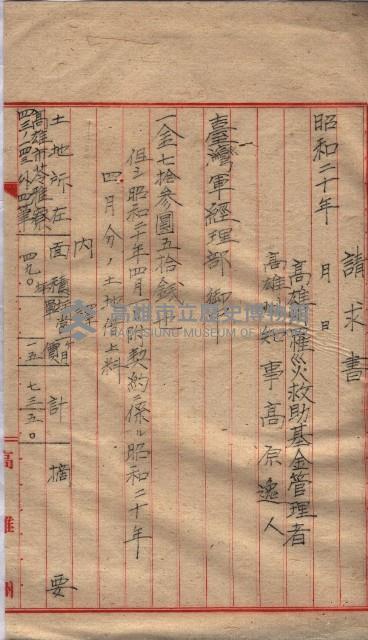 請求書
昭和二十年　月　日
高雄州罹災救助基金管理者
高雄州知事高原逸人
臺灣軍經理部御中
一金七拾參圓五拾錢也
但シ昭和二十年四月　日附契約ニ係ル昭和二十年
四月分ノ土地借上料
內
土地所在　面積　單價　計　摘要
高雄市苓雅寮
四三ノ四三外四筆　四九〇　一五　七三五〇
高雄州
高雄市立歷史博物館
KAOHSIUNG MUSEUM OF HISTORY